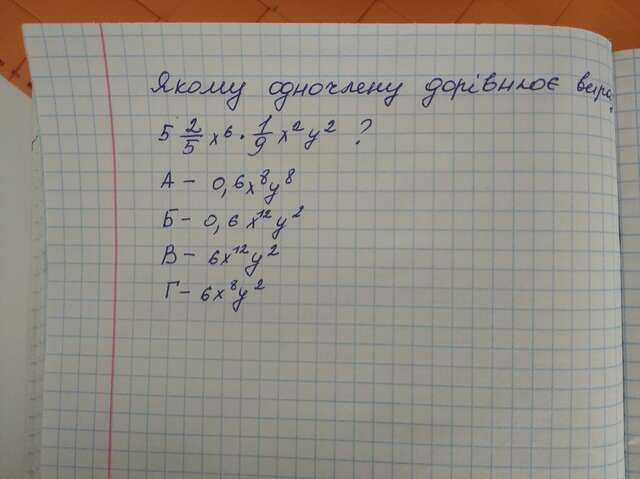 Якому одночлену дорівнює вира
5 2/5 x⁶ · 1/9 x² y² ?
А - 0,6x⁸y⁸
Б - 0,6x¹²y²
В - 6x¹²y²
Г - 6x⁸y²